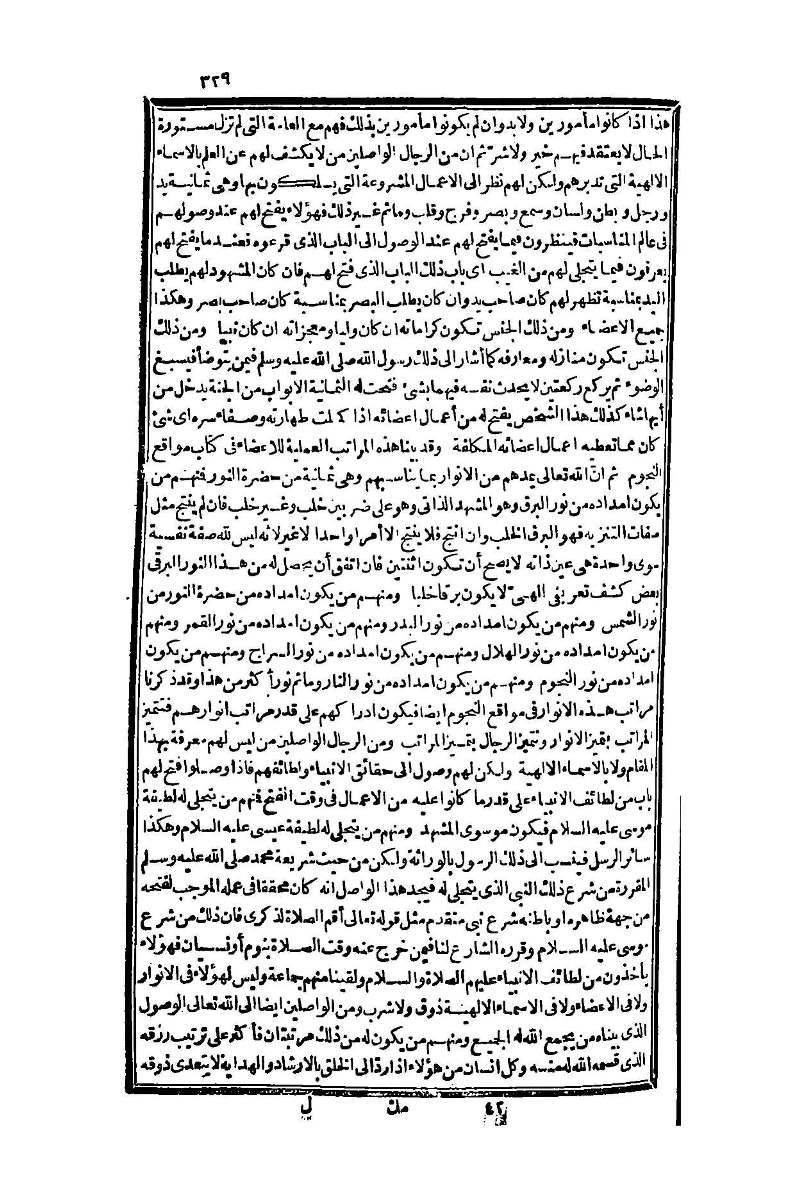 ٣٢٩
هذا اذا كانوا مأمورين ولابد وان لم يكونوا مأمورين بذلك فهم مع العامة التى لم تزل مستورة
الحال لا يعتقد فيهم خير ولا شر ثم ان من الرجال الواصلين من لا يكشف لهم عن العلم بالاسماء
الالهية التى تدبرهم ولكن لهم نظر الى الاعمال المشروعة التى يسلكون بها وهى ثمانية يد
ورجل وبطن ولسان وسمع وبصر وفرج وقلب وماثم غير ذلك فهؤلاء يفتح لهم عند وصولهم
فى عالم المناسبات فينظرون فيما يفتح لهم عند الوصول الى الباب الذى قرعوه فعند ما يفتح لهم
يعرفون فيما يتجلى لهم من الغيب اى باب ذلك الباب الذى فتح لهم فان كان المشهود لهم يطلب
اليد بمناسبة تظهر لهم كان صاحب يد وان كان يطلب البصر بمناسبة كان صاحب بصر وهكذا
جميع الاعضاء ومن ذلك الجنس تكون كراماته ان كان وليا ومعجزاته ان كان نبيا ومن ذلك
الجنس تكون منازله ومعارفه كما أشار الى ذلك رسول الله صلى الله عليه وسلم فيمن يتوضأ فيسبغ
الوضوء ثم يركع ركعتين لا يحدث نفسه فيهما بشئ فتحت له الثمانية الابواب من الجنة يدخل من
أيها شاء كذلك هذا الشخص يفتح له من أعمال اعضائه اذا كملت طهارته وصفاء سره اى شئ
كان مما تعطيه اعمال اعضائه المكلفة وقد بينا هذه المراتب العملية للاعضاء فى كتاب مواقع
النجوم ثم انّ الله تعالى يمدهم من الانوار بما يناسبهم وهى ثمانية من حضرة النور فمنهم من
يكون امداده من نور البرق وهو المشهد الذاتى وهو على ضربين خلب وغير خلب فان لم ينتج مثل
صفات التنزيه فهو البرق الخلب وان انتج فلا ينتج الا أمرا واحدا لا غير لانه ليس لله صفة نفسية
سوى واحدة هى عين ذاته لا يصح أن تكون اثنتين فان اتفق أن يحصل له من هذا النور البرقى
بعض كشف تعريفى الهى لا يكون برقا خلبا ومنهم من يكون امداده من حضرة النور من
نور الشمس ومنهم من يكون امداده من نور البدر ومنهم من يكون امداده من نور القمر ومنهم
من يكون امداده من نور الهلال ومنهم من يكون امداده من نور السراج ومنهم من يكون
امداده من نور النجوم ومنهم من يكون امداده من نور النار وماثم نور أكثر من هذا وقد ذكرنا
مراتب هذه الانوار فى مواقع النجوم ايضا فيكون ادراكهم على قدر مراتب انوارهم فتتميز
المراتب بتميز الانوار وتتميز الرجال بتميز المراتب ومن الرجال الواصلين من ليس لهم معرفة بهذا
المقام ولا بالاسماء الالهية ولكن لهم وصول الى حقائق الانبياء ولطائفهم فاذا وصلوا فتح لهم
باب من لطائف الانبياء على قدر ما كانوا عليه من الاعمال فى وقت الفتح فمنهم من يتجلى له لطيفة
موسى عليه السلام فيكون موسوى المشهد ومنهم من يتجلى له لطيفة عيسى عليه السلام وهكذا
سائر الرسل فينسب الى ذلك الرسول بالوراثة ولكن من حيث شريعة محمد صلى الله عليه وسلم
المقررة من شرع ذلك النبى الذى يتجلى له فيجد هذا الواصل انه كان محققا فى عمله الموجب لفتحه
من جهة ظاهره او باطنه شرع نبى متقدم مثل قوله تعالى أقم الصلاة لذكرى فان ذلك من شرع
موسى عليه السلام وقرره الشارع لنا فيمن خرج عنه وقت الصلاة بنوم أو نسيان فهؤلاء
يأخذون من لطائف الانبياء عليهم الصلاة والسلام ولقينا منهم جماعة وليس لهؤلاء فى الانوار
ولا فى الاعضاء ولا فى الاسماء الالهية ذوق ولا شرب ومن الواصلين ايضا الى الله تعالى الوصول
الذى بيناه من يجمع الله له الجميع ومنهم من يكون له من ذلك مرتبتان فأكثر على ترتيب رزقه
الذى قسمه الله له منه وكل انسان من هؤلاء اذا ردّ الى الخلق بالارشاد والهداية لا يتعدى ذوقه
٤٢ مك ل